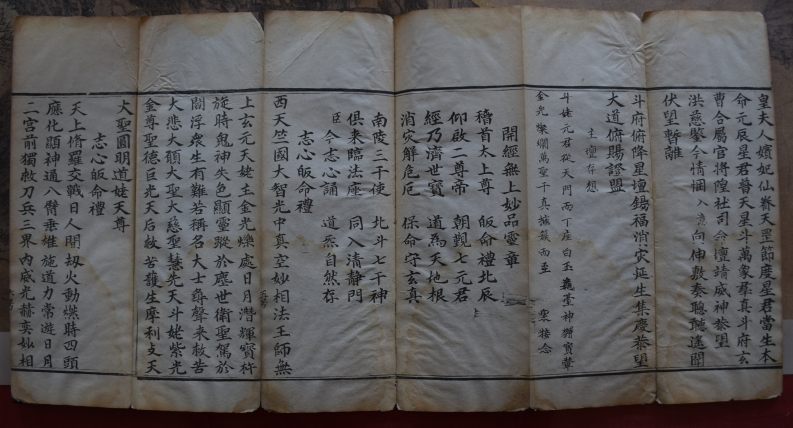 皇夫人嬪妃仙眷天罡節度星君當生本
命元辰星君普天星斗萬象羣真斗府玄
曹合屬官將隍社司命壇靖威神恭望
洪慈鑒今情悃入意向伸敷奏聰聽遙聞
伏望暫離
斗府俯降星壇錫福消灾延生集慶恭望
大道俯賜證盟
主壇存想
斗姥元君從天門而下座白玉龜臺神獬寶輦
金光燦爛萬聖千真擁護而至 眾接念
開經無上妙品靈章
稽首太上尊 皈命禮北辰
仰啟二尊帝 朝覲七元君
經乃濟世寶 道為天地根
消灾解危厄 保命守玄真
南陵三千使 北斗七千神
俱来臨法座 同入清静門
臣今志心誦 道炁自然存
志心皈命禮
西天竺國大智光中真空妙相法王師無
上玄元天姥主金光爍處日月潛輝寶杵
旋時鬼神失色顯靈蹤於塵世衛聖駕於
閻浮衆生有難若稱名大士尋聲来救苦
大悲大願大聖大慈聖慧先天斗姥紫光
金尊聖德巨光天后救苦護生摩利支天
大聖圓明道姥天尊
志心皈命禮
天上脩羅交戰日人間刼火動燦時四頭
應化顯神通八臂垂雄施道力常遊日月
二宮前獨救刀兵三界内威光赫奕妙相